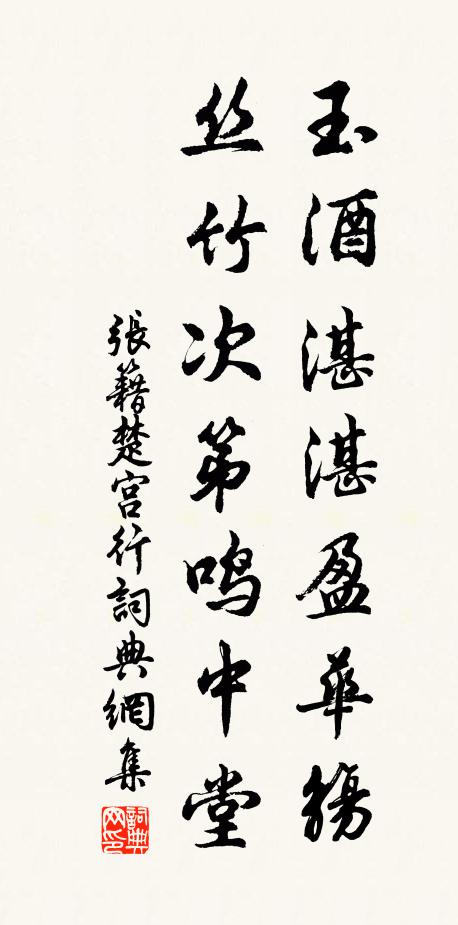 玉酒湛湛盈華觴
丝竹次第鸣中堂
張籍楚宫行詞典網集
詞典网印